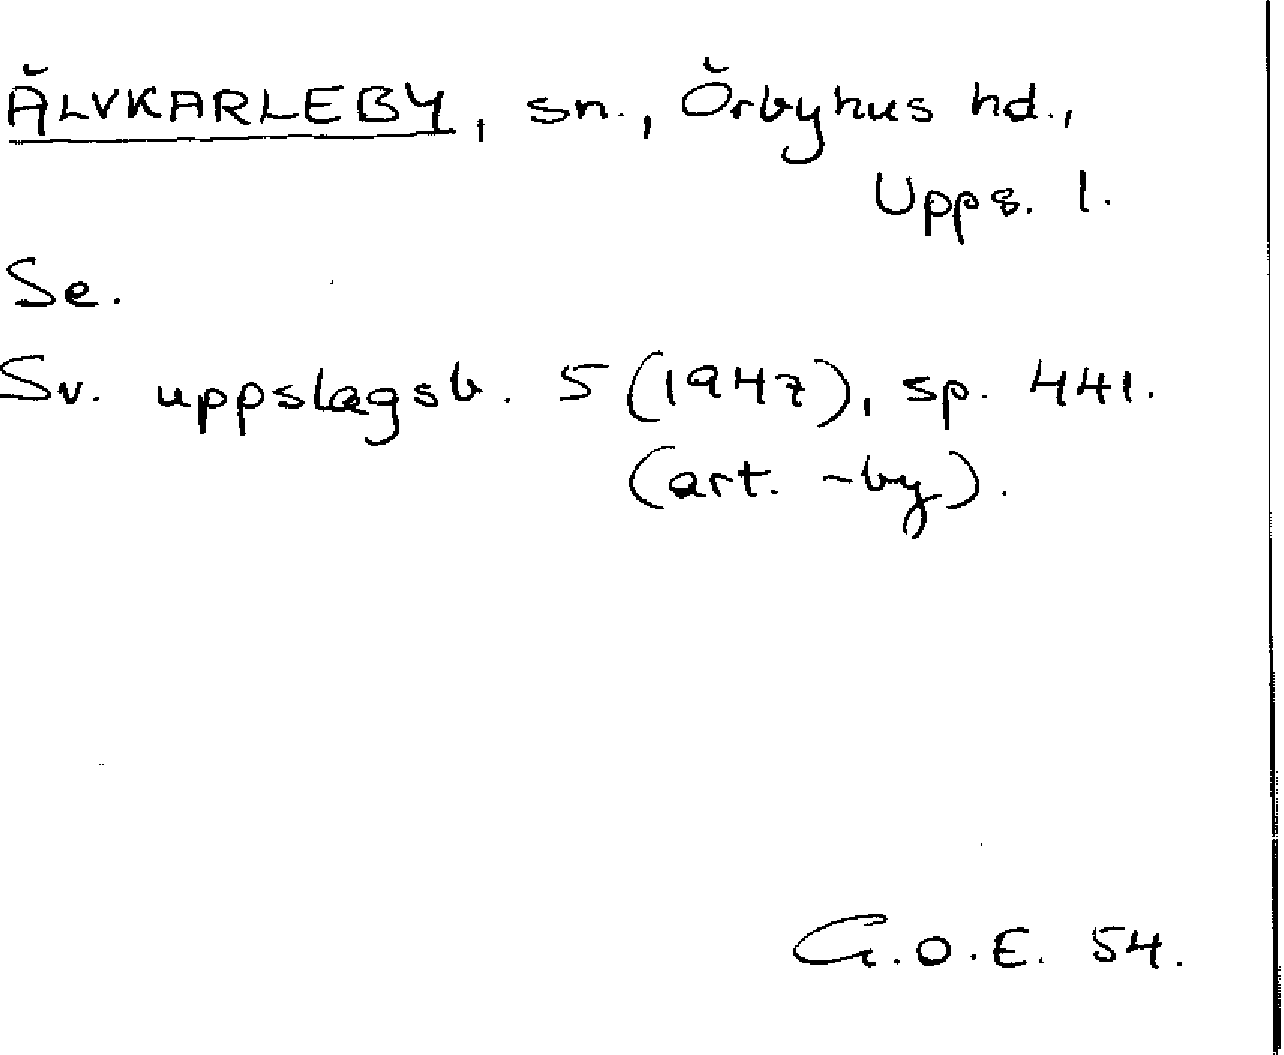 ÄLVKARLEBY, sn., Örbyhus hd.,
Upps. l.
Se.
Sv. uppslagsb. 5 (1947), sp. 441.
(art. -by).
G.O.E. 54.